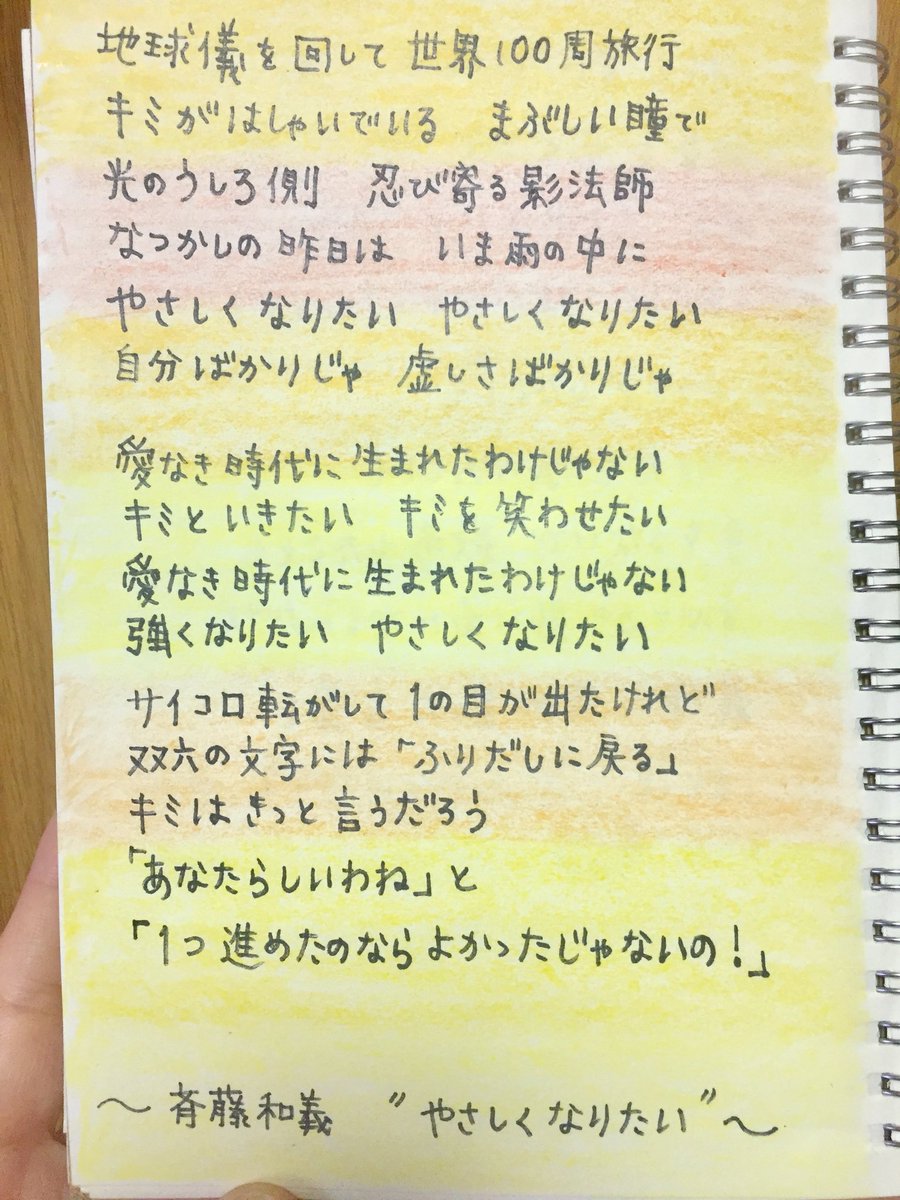 地球儀を回して 世界100周旅行
キミがはしゃいでいる まぶしい瞳で
光のうしろ側 忍び寄る影法師
なつかしの昨日は いま雨の中に
やさしくなりたい やさしくなりたい
自分ばかりじゃ 虚しさばかりじゃ
愛なき時代に生まれたわけじゃない
キミといきたい キミを笑わせたい
愛なき時代に生まれたわけじゃない
強くなりたい やさしくなりたい
サイコロ転がして1の目が出たけれど
双六の文字には「ふりだしに戻る」
キミはきっと言うだろう
「あなたらしいわね」と
「1つ進めたのならよかったじゃないの!」
〜 斉藤和義 “やさしくなりたい” 〜